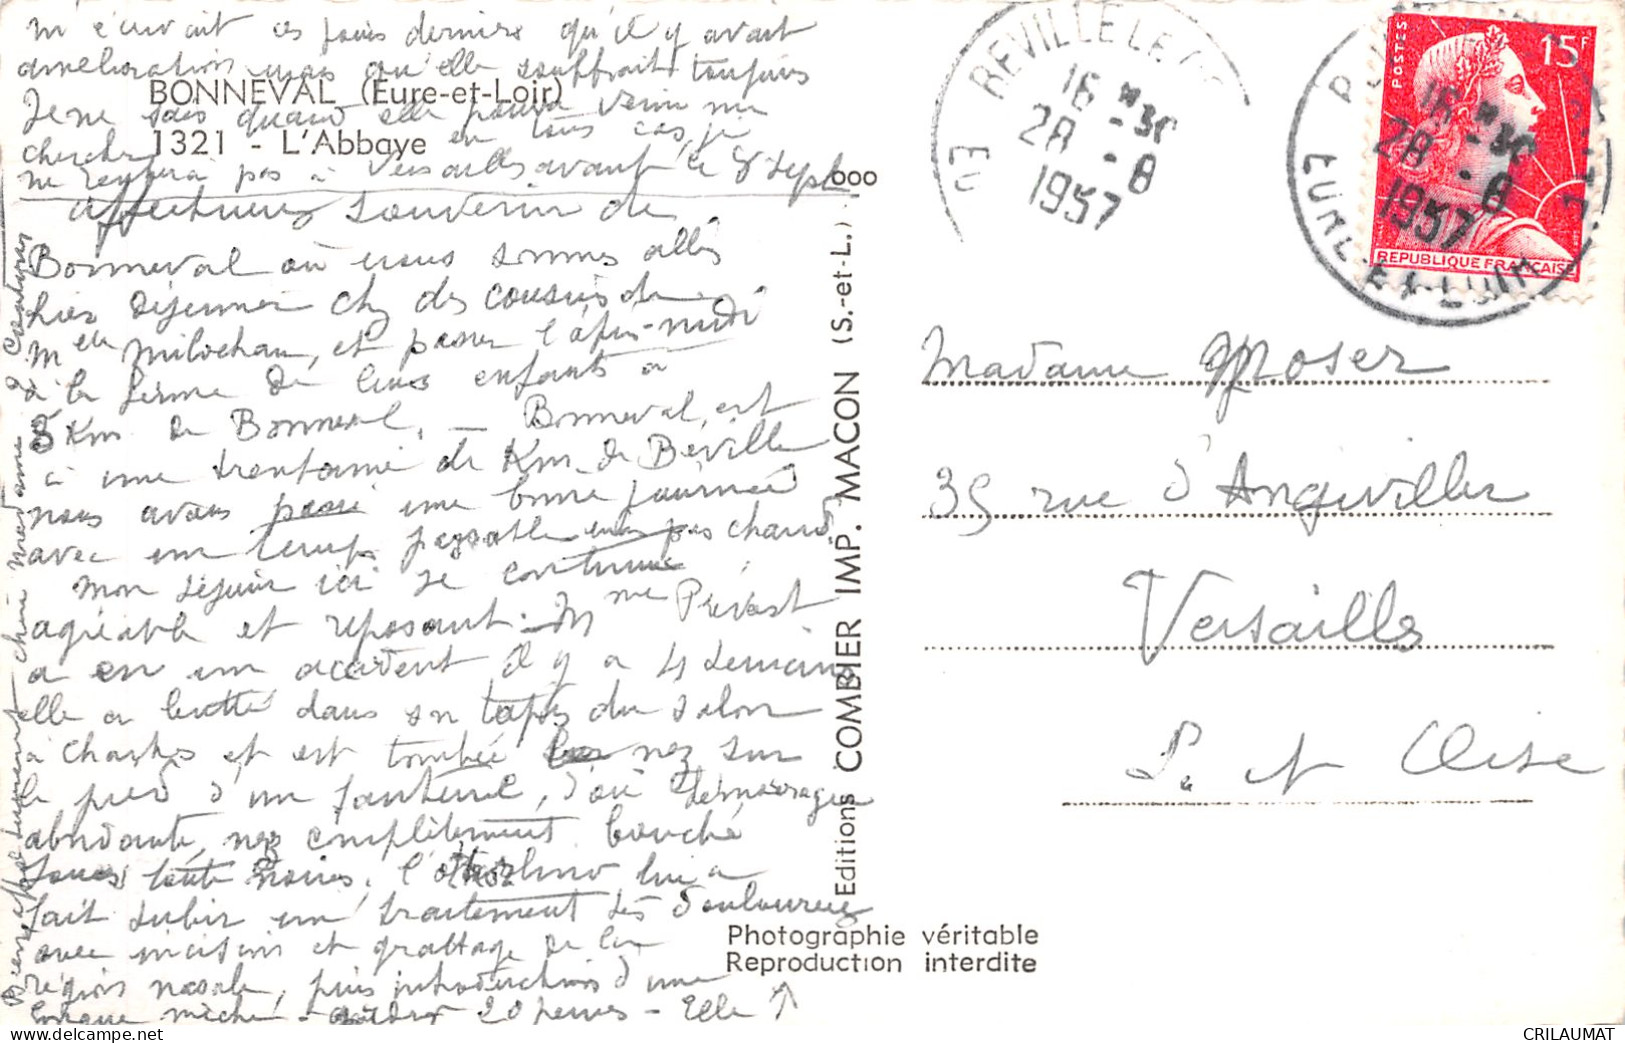 m'écrivait ces jours derniers qu'il y avait
amélioration mais qu'elle souffrait toujours
BONNEVAL (Eure-et-Loir)
Je ne sais quand elle pourra venir me
1321 - L'Abbaye
chercher en tous cas, je
ne rentrerai pas à Versailles avant le 8 sept
Affectueux souvenir de
Bonneval où nous sommes allés
hier déjeuner chez des cousins de
Melle Milochau, et passer l'après-midi
à la ferme de leurs enfants à
8 Km de Bonneval. _ Bonneval est
à une trentaine de Km de Béville
nous avons passé une bonne journée
avec un temps passable mais pas chaud
Mon séjour ici se continue
agréable et reposant. _ Mme Prévost
a eu un accident il y a 4 semaines
elle a butté dans un tapis du salon
à Chartres et est tombée nez sur
le pied d'un fauteuil, d'où hémorragie
abondante, nez complètement bouché
toute noire. l'oto-rhino lui a
fait subir un traitement très douloureux
avec incision et grattage de la
région nasale, puis introduction d'une
longue mèche - 20 - Elle ↑
Bien affectueusement chère madame
Editions COMBIER IMP. MACON (S.-et-L.)
Photographie véritable
Reproduction interdite
BEVILLE LE
16 H 30
28 - 8
1957
EU
POSTES
15F
REPUBLIQUE FRANÇAISE
16 H 30
28 - 8
1957
EURE-ET-LOIR
Madame Moser
35 rue d'Angiviller
Versailles
S. et Oise
CRILAUMAT